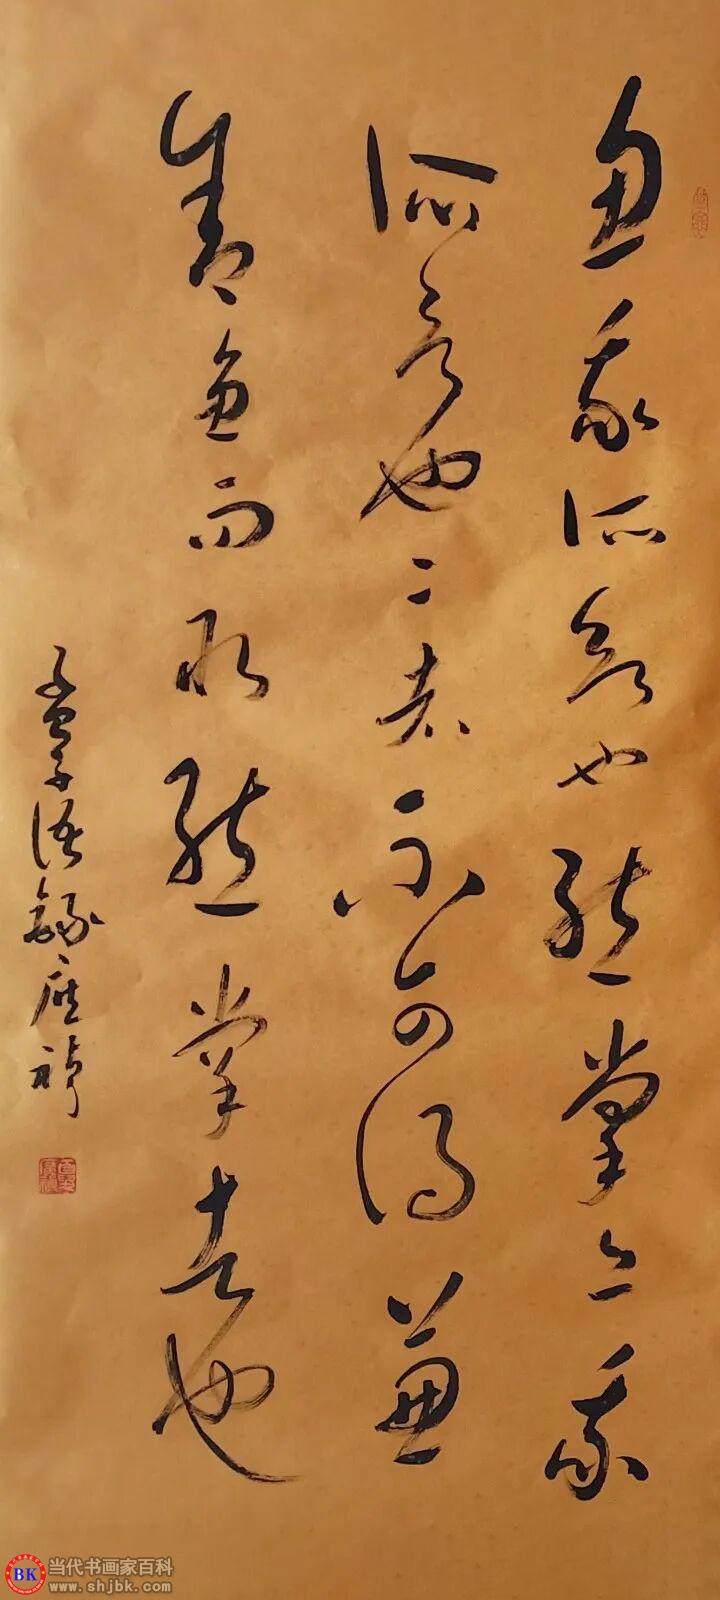 鱼我所欲也熊掌亦我
所欲也二者不可得兼
舍鱼而取熊掌者也
孟子语録
BK
当代书画家百科
www.shjbk.com